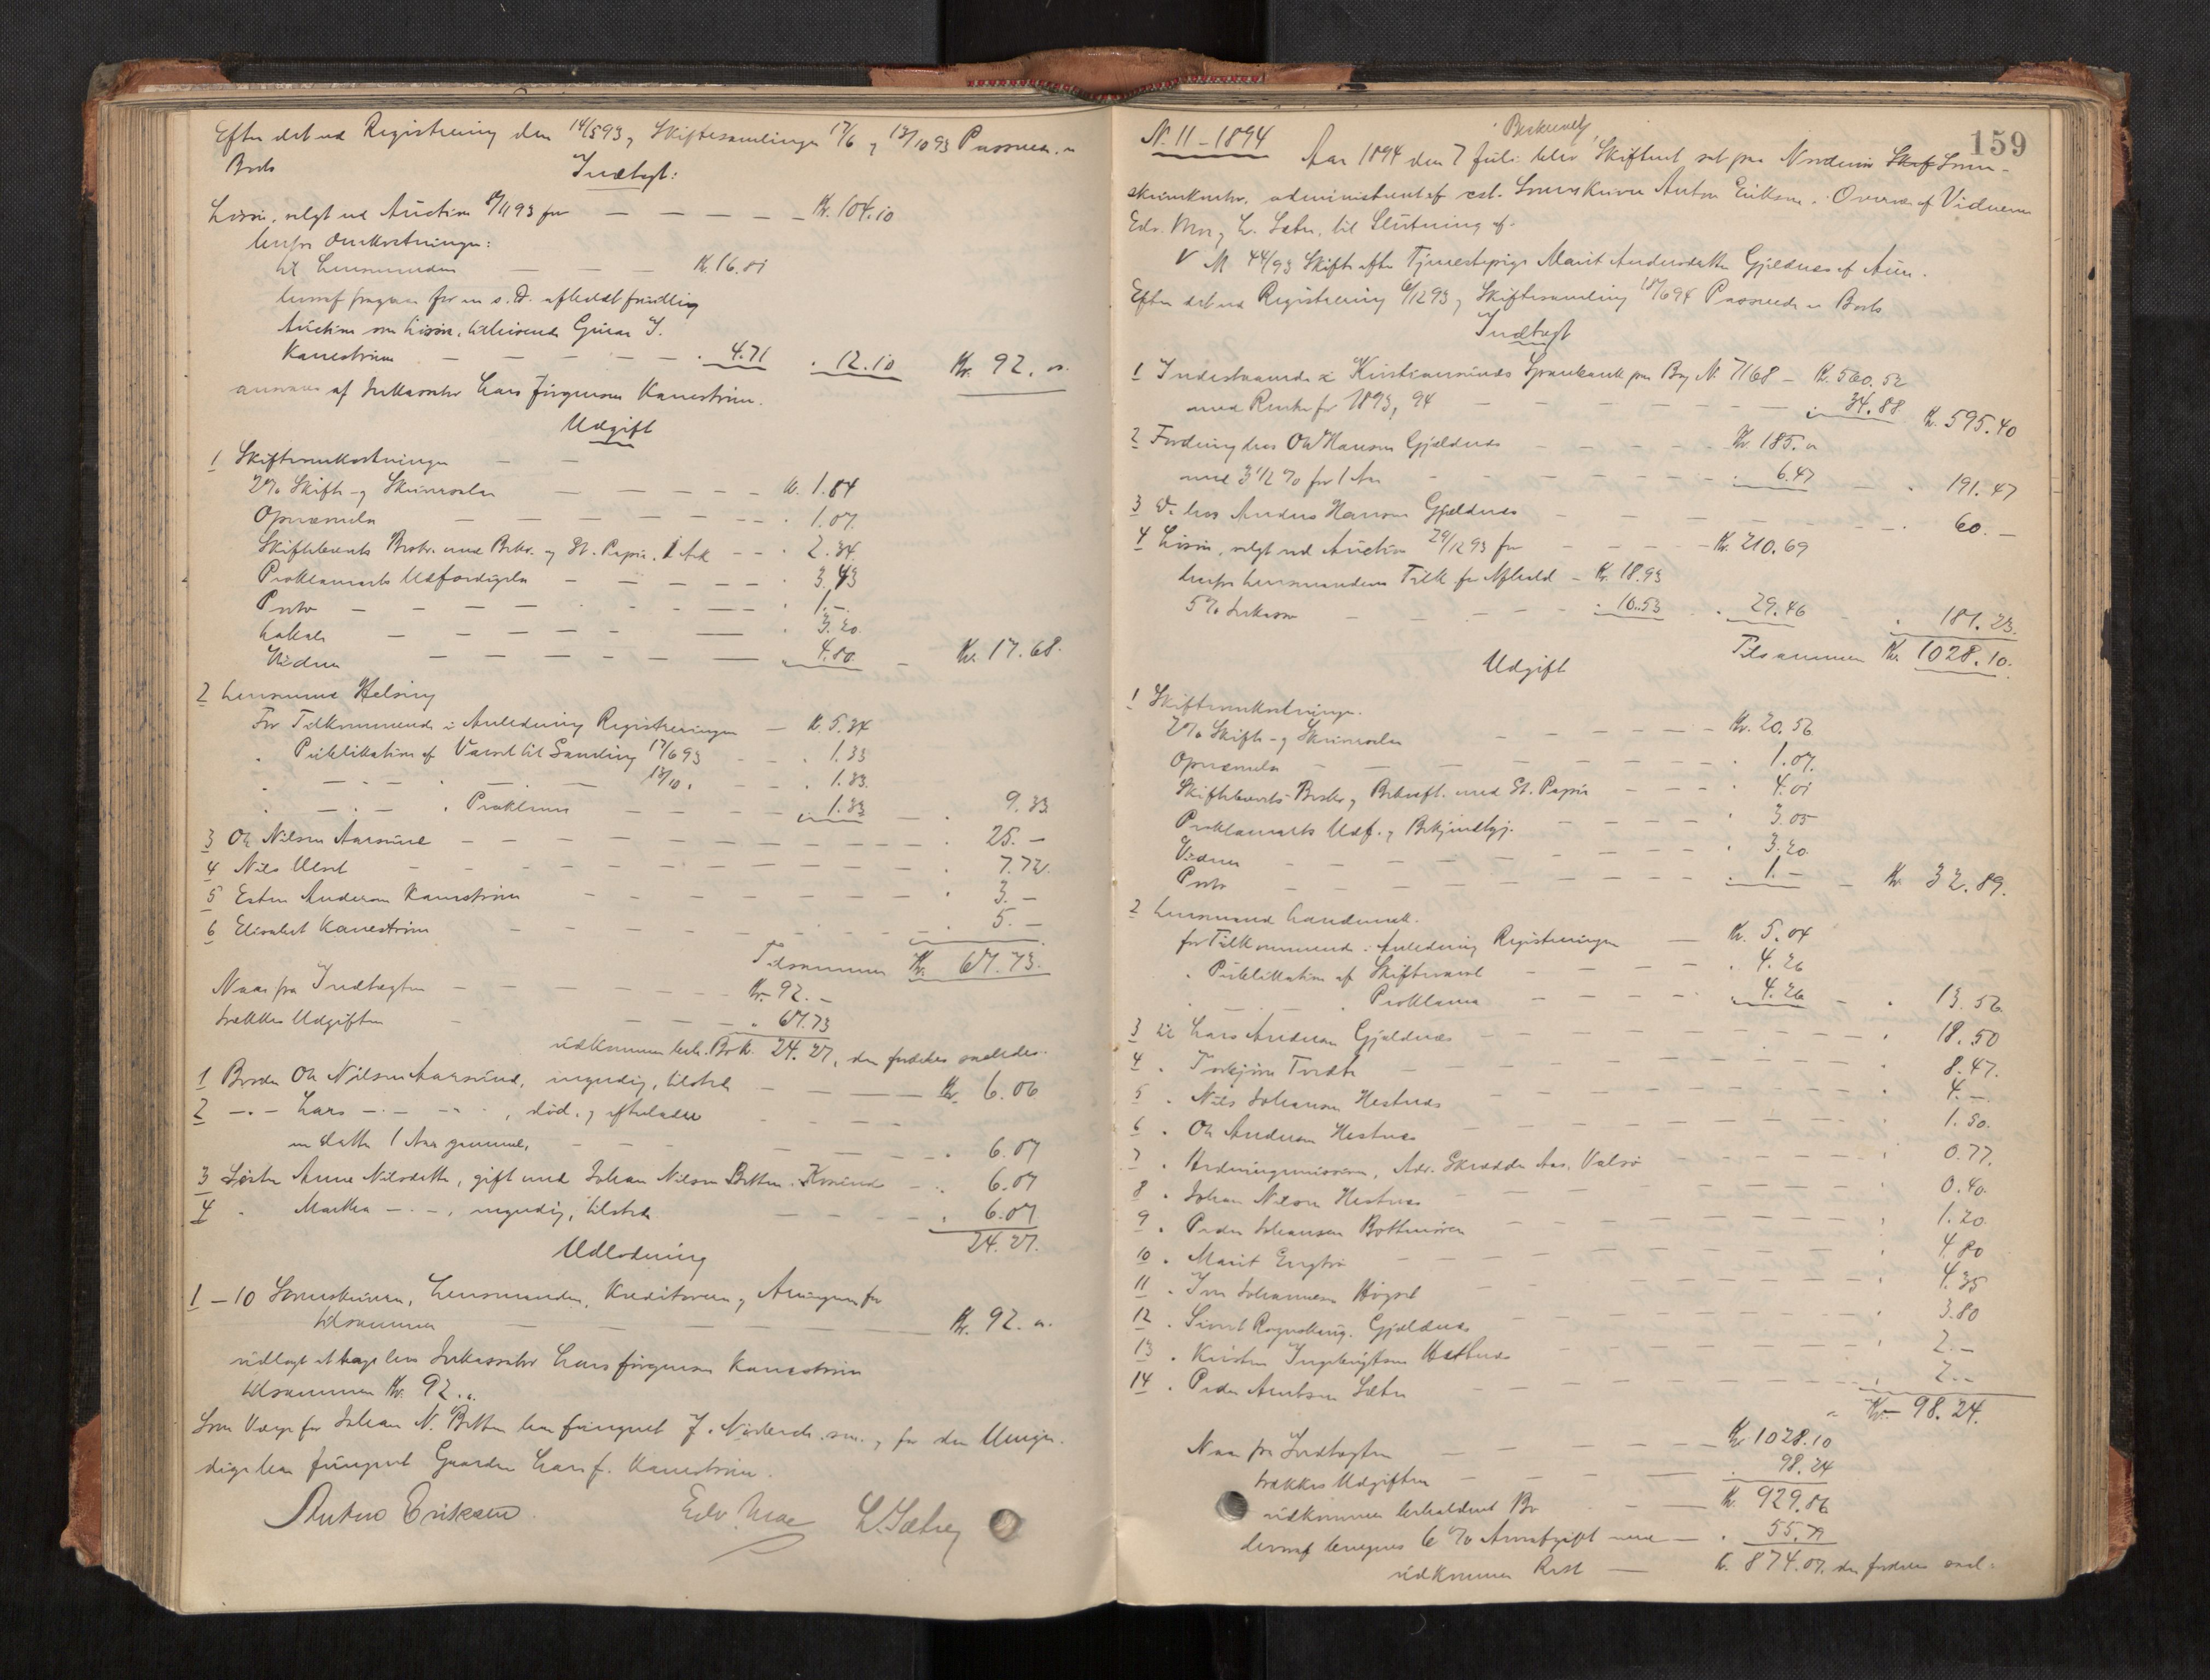 Efter det ved Registrering den 14/5 93 og Skiftesamlinger 17/6 og 13/10 93 Passerede er
Boets
Indtægt:
Løsøre, solgt ved Auction 8/11 93 for — — — — — Kr. 104.10
herfra Omkostninger:
til Lensmanden — — — Kr. 16.81
heraf fragaar for en s. D. afholdt frivillig
Auction over Løsøre, tilhørende Gurine J.
Kanestrøm — — — — — . 4.71 . 12.10 Kr. 92. "
 af Inkassator Lars Jørgensen Kanestrøm.
Udgift
1 Skifteomkostninger — —
2% Skifte- og Skriversalær — — — — — Kr. 1.84
Opnævnelse — — — — — — — . 1.07.
Skiftebrevets Beskr. med Bekr. og St. Papir, 1 Ark — — . 2.34.
Proklamaets Udfærdigelse — — — — — . 3.43
Porto — — — — — — — . 1.—.
Lokale — — — — — — . 3.20.
Vidner — — — — — — — 4.80. — Kr. 17.68.
2 Lensmand Helsing
For Tilkommende i Anledning Registreringen — Kr. 5.34
. Publikation af Varsel til Samling 17/6 93 — — . 1.33
. — . — . — 13/10 . — — . 1.33.
. — . — . Proklama — — — — 1.33 — . 9.33
3 Ole Nilsen Aarsund — — — — — — — — . 25.—
4 Nils Ulset — — — — — — — — . 7.72.
5 Esten Andersen Kanestrøm — — — — — — . 3.—
6 Elisabet Kanestrøm — — — — — — — . 5.—
Tilsammen Kr. 67.73.
Naar fra Indtægten — — — — — Kr. 92.—
trækkes Udgiften — — — — . 67.73
udkommer beh. Bo Kr. 24.27, der fordeles saaledes.
1 Broder Ole Nilsen Aarsund, myndig, tilstede — — — — Kr. 6.06
2 — . — Lars — . — — . , død og efterladt
en datter 1 Aar gammel, — — — — — — . 6.07
3 Søster Anne Nilsdatter, gift med Johan Nilsen Botten . — . 6.07
4 . Martha — . — , myndig, tilstede — — — — . 6.07
24.27.
Udlodning
1 – 10 Sorenskriveren, Lensmanden, Kreditorerne og Arvingerne for
tilsammen — — — — — — Kr. 92. ".
udlagt at hæve hos Inkassator Lars Jørgensen Kanestrøm
tilsammen Kr. 92. ".
Som Værge for Johan N. Botten har fungeret J. sen. og for den Umyn-
dige har fungeret Gaardm. Lars J. Kanestrøm.
Anton Eriksen. Edv. Moe L. Sætre
159
N. 11 – 1894
Beskrevet
Aar 1894 den 7 Juli blev Skifteret sat paa Nordmøre Skif Soren-
skriverkontor, administreret af cst. Sorenskriver Anton Eriksen. Overvær. af Vidnerne
Edv. Moe og L. Sætre, til Slutning af:
V N. 44/93 Skifte efter Tjenestepige Marit Andersdatter Gjeldnes af Aure.
Efter det ved Registrering 6/12 93 og Skiftesamling 18/6 94 Passerede er Boets
Indtægt
1 Indestaaende i Kristianssunds Sparebank paa Bog N. 7168 — Kr. 560.52
med Renter for 1893, 94 — — — — — — — . 34.88 Kr. 595.40
2 Fordring hos Ole Hansen Gjeldnes — — — — Kr. 185. "
med 3 1/2 % for 1 Aar — — — — — — . 6.47 — . 191.47
3 Do. hos Anders Hansen Gjeldnes — — — — — — — . 60.—
4 Løsøre, solgt ved Auction 29/12 93 for — — — — Kr. 210.69
herfra Lensmandens Tilk. for Afhold — Kr. 18.93
5% Inkasso — — — — — . 10.53 . 29.46 — . 181.23.
Tilsammen Kr. 1028.10.
Udgift
1 Skifteomkostninger.
2% Skifte- og Skriversalær — — — — — Kr. 20.56
Opnævnelse — — — — — — — — . 1.07.
Skiftebrevets Beskr. og Bekræft. med St. Papir — — — . 4.01
Proklamaets Udf. og Bekjendtgj. — — — — . 3.05
Vidner — — — — — — — — . 3.20.
Porto — — — — — — — . 1.— — Kr. 32.89.
2 Lensmand Landmark.
for Tilkommende i Anledning Registreringen — Kr. 5.04
. Publikation af Skiftevarsel — — — — . 4.26
. . Proklama — — — — . 4.26 — . 13.56
3 til Lars Andersen Gjeldnes — — — — — — . 18.50
4 . Torbjørn Tvedte — — — — — — — . 8.47.
5 . Nils Johansen Hestnes — — — — — — . 4.—
6 . Ole Andersen Hestnes — — — — — — . 1.50.
7 . Hedningmissionen, Adr. Skrædder Aas, Valsø — — — — . 0.77.
8 . Johan Nilsen Hestnes — — — — — — . 0.40.
9 . Peder Johansen Bottenviken — — — — — — . 1.20.
10 . Marit Engdro — — — — — — . 4.80
11 . Iver Johannesen Høgset — — — — — — . 4.35
12 . Sivert Gjeldnes — — — — — . 3.80
13 . Kristen Ingebrigtsen Hestnes — — — — — — . 2.—
14 . Peder Arntsen Sætre — — — — — — . 2.—
Kr. 98.24.
Naar fra Indtægten — — — — — Kr. 1028.10
trækkes Udgiften — — — — . 98.24
udkommer beholdent Bo — — Kr. 929.86
hvoraf beregnes 6% Arveafgift med — . 55.79
udkommer Rest — Kr. 874.07, der fordeles saal-